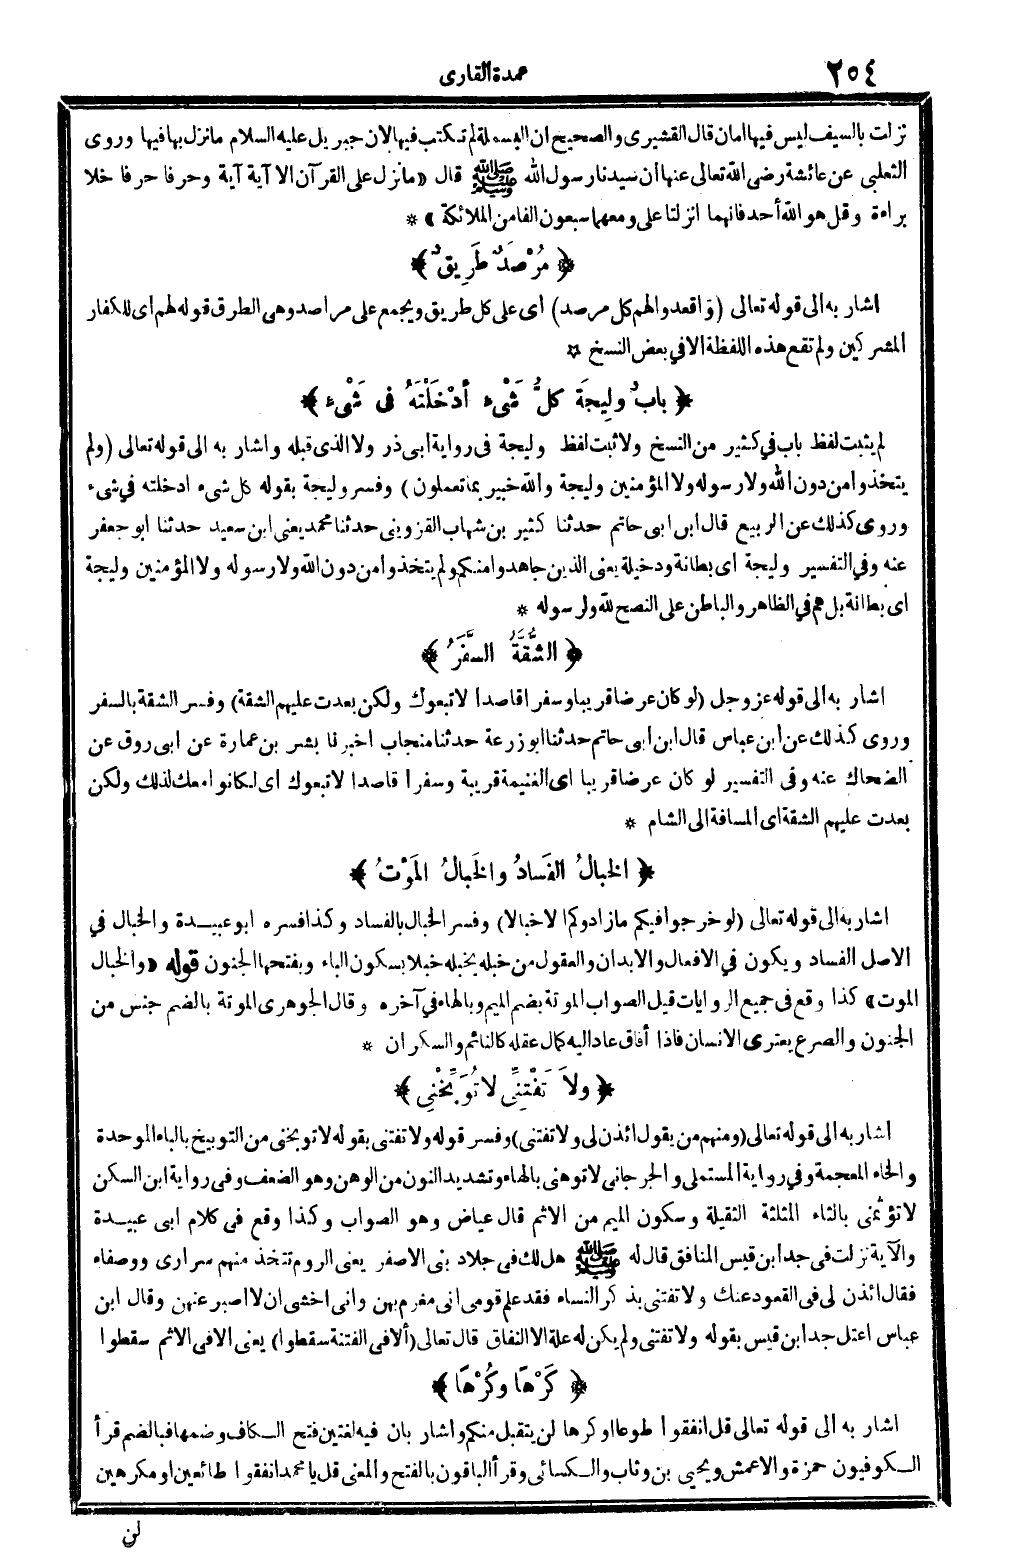 ٢٥٤
عمدة القارى
نزلت بالسيف ليس فيها امان قال القشيرى والصحيح ان البسملة لم تكتب فيها لان جبريل عليه السلام مانزل بها فيها وروى
الثعلبى عن عائشة رضى الله تعالى عنها أن سيدنا رسول الله ﷺ قال «مانزل على القرآن الا آية آية وحرفا حرفا خلا
براءة وقل هو الله أحد فانهما انزلتا على ومعهما سبعون الفا من الملائكة» *
﴿ مُرْصَدٌ طَرِيقٌ ﴾
اشار به الى قوله تعالى (واقعدوا لهم كل مرصد) أى على كل طريق ويجمع على مراصد وهى الطرق قوله لهم اى للكفار
المشركين ولم تقع هذه اللفظة الا في بعض النسخ *
﴿ بابُ ولِيجَةَ كلُّ شَىْءٍ أدْخَلْتَهُ فى شَىْءٍ ﴾
لم يثبت لفظ باب في كثير من النسخ ولا ثبت لفظ وليجة فى رواية أبى ذر ولا الذى قبله واشار به الى قوله تعالى (ولم
يتخذوا من دون الله ولا رسوله ولا المؤمنين وليجة والله خبير بما تعملون) وفسر وليجة بقوله كل شىء ادخلته في شىء
وروى كذلك عن الربيع قال ابن ابى حاتم حدثنا كثير بن شهاب القزوينى حدثنا محمد يعنى ابن سعيد حدثنا ابو جعفر
عنه وفي التفسير وليجة اى بطانة ودخيلة يعنى الذين جاهدوا منكم ولم يتخذوا من دون الله ولا رسوله ولا المؤمنين وليجة
اى بطانة بل هم في الظاهر والباطن على النصح لله ولرسوله *
﴿ الشُّقَّةُ السَّفَرُ ﴾
اشار به الى قوله عز وجل (لو كان عرضا قريبا وسفرا قاصدا لاتبعوك ولكن بعدت عليهم الشقة) وفسر الشقة بالسفر
وروى كذلك عن ابن عباس قال ابن ابى حاتم حدثنا ابو زرعة حدثنا منجاب اخبرنا بشر بن عمارة عن ابى روق عن
الضحاك عنه وفى التفسير لو كان عرضا قريبا اى الغنيمة قريبة وسفرا قاصدا لاتبعوك اى لكانوا معك لذلك ولكن
بعدت عليهم الشقة اى المسافة الى الشام *
﴿ الخبالُ الفَسادُ والخَبالُ المَوْتُ ﴾
اشار به الى قوله تعالى (لو خرجوا فيكم مازادوكم الا خبالا) وفسر الخبال بالفساد وكذا فسره ابو عبيدة والخبال في
الاصل الفساد ويكون في الافعال والابدان والعقول من خبله يخبله خبلا بسكون الباء وبفتحها الجنون قوله «والخبال
الموت» كذا وقع فى جميع الروايات قيل الصواب الموتة بضم الميم وبالهاء في آخره وقال الجوهرى الموتة بالضم جنس من
الجنون والصرع يعترى الانسان فاذا أفاق عاد اليه كمال عقله كالنائم والسكران *
﴿ ولاَ تَفْتِنِّى لا تُوَبِّخْنِى ﴾
اشار به الى قوله تعالى (ومنهم من يقول ائذن لى ولا تفتنى) وفسر قوله ولا تفتنى بقوله لا توبخنى من التوبيخ بالباء الموحدة
والخاء المعجمة وفي رواية المستملى والجرجانى لا توهنى بالهاء وتشديد النون من الوهن وهو الضعف وفى رواية ابن السكن
لا تؤثمنى بالثاء المثلثة الثقيلة وسكون الميم من الاثم قال عياض وهو الصواب وكذا وقع فى كلام ابى عبيدة
والآية نزلت فى جد ابن قيس المنافق قال له ﷺ هل لك فى جلاد بنى الاصفر يعنى الروم تتخذ منهم سرارى ووصفاء
فقال ائذن لى فى القعود عنك ولا تفتنى بذكر النساء فقد علم قومى انى مغرم بهن وانى اخشى ان لا اصبر عنهن وقال ابن
عباس اعتل جد ابن قيس بقوله ولا تفتنى ولم يكن له علة الا النفاق قال تعالى (ألا فى الفتنة سقطوا) يعنى الا فى الاثم سقطوا
﴿ كَرْهًا وكُرْهًا ﴾
اشار به الى قوله تعالى قل انفقوا طوعا او كرها لن يتقبل منكم واشار بان فيه لغتين فتح الكاف وضمها فبالضم قرأ
الكوفيون حمزة والاعمش ويحيى بن وثاب والكسائى وقرأ الباقون بالفتح والمعنى قل يا محمد انفقوا طائعين او مكرهين
لن